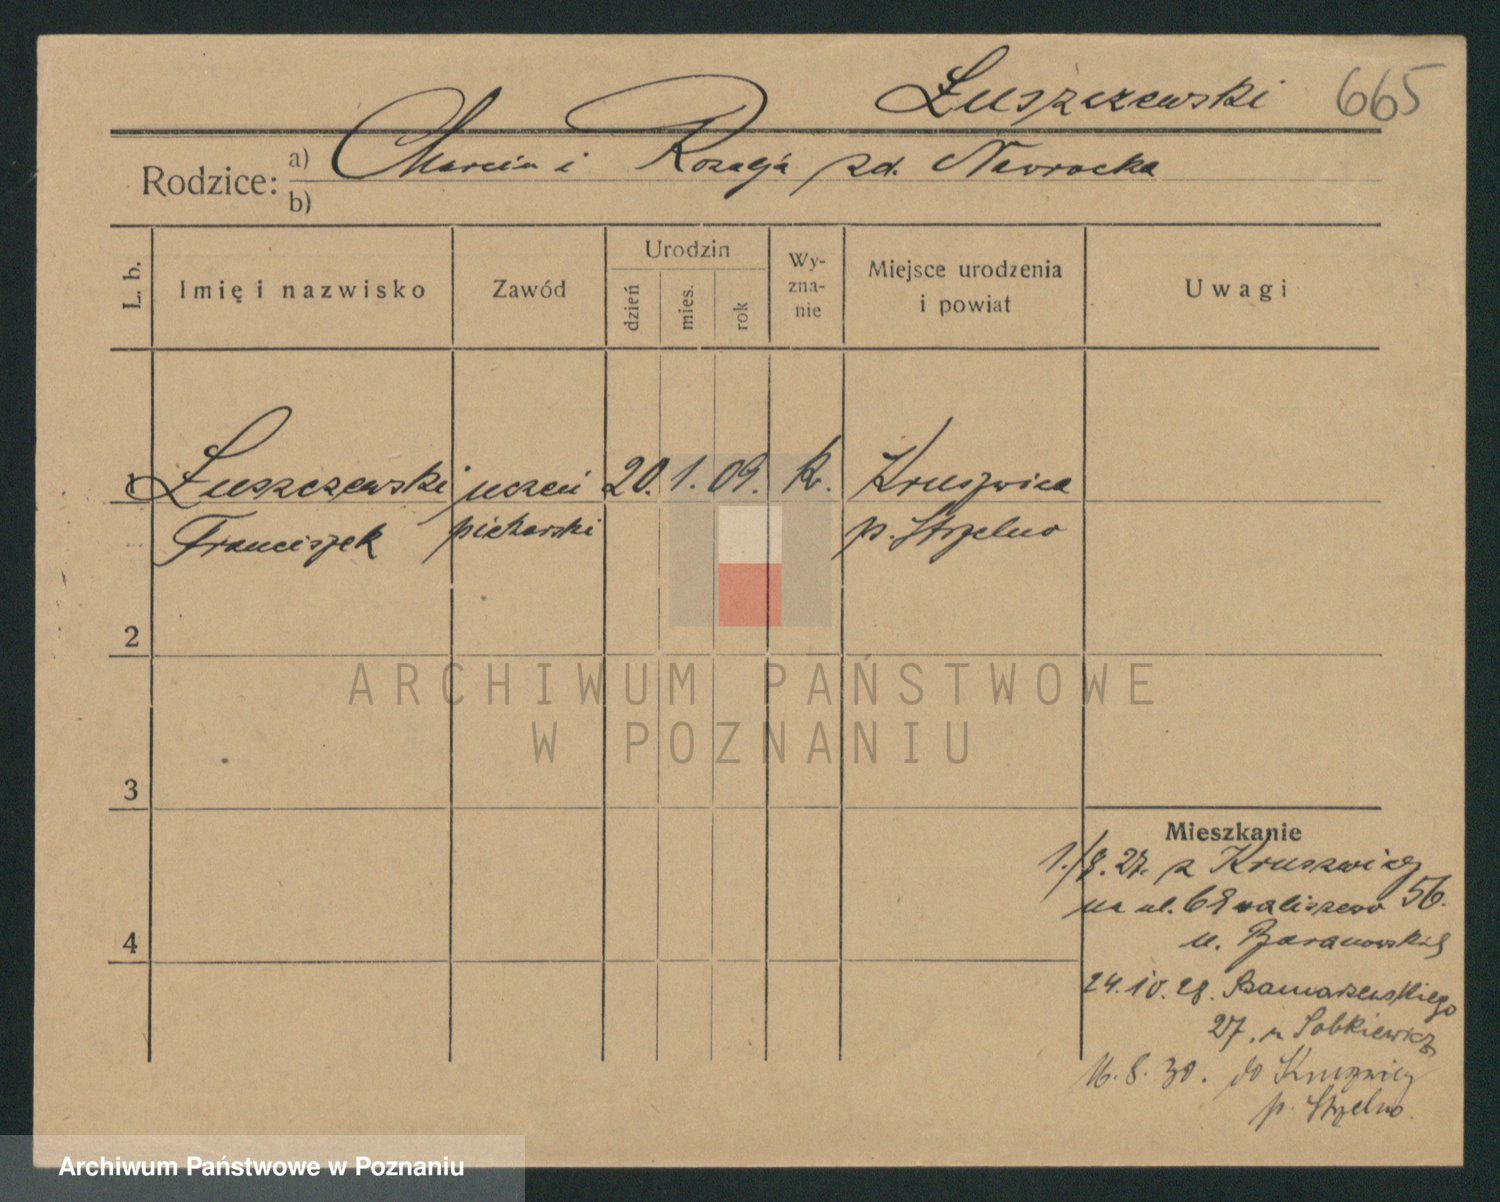 Łuszczewski 665
Rodzice: a) Marcin i Rozalja zd. Nawrocka
b)
L. b.
Imię i nazwisko
Zawód
Urodzin
dzień
mies.
rok
Wy-
zna-
nie
Miejsce urodzenia
i powiat
Uwagi
1 Łuszczewski uczeń 20. 1. 09. k. Kruszwica
Franciszek piekarski p. Strzelno
2
3
4
Mieszkanie
1./8. 27. z Kruszwicy
na ul. 56.
u. Baranowskiej
24.10.28. Bamarzewskiego
27, u Sobkiewicz
16.8.30. do Kruszwicy
p. Strzelno.
ARCHIWUM PAŃSTWOWE
W POZNANIU
Archiwum Państwowe w Poznaniu